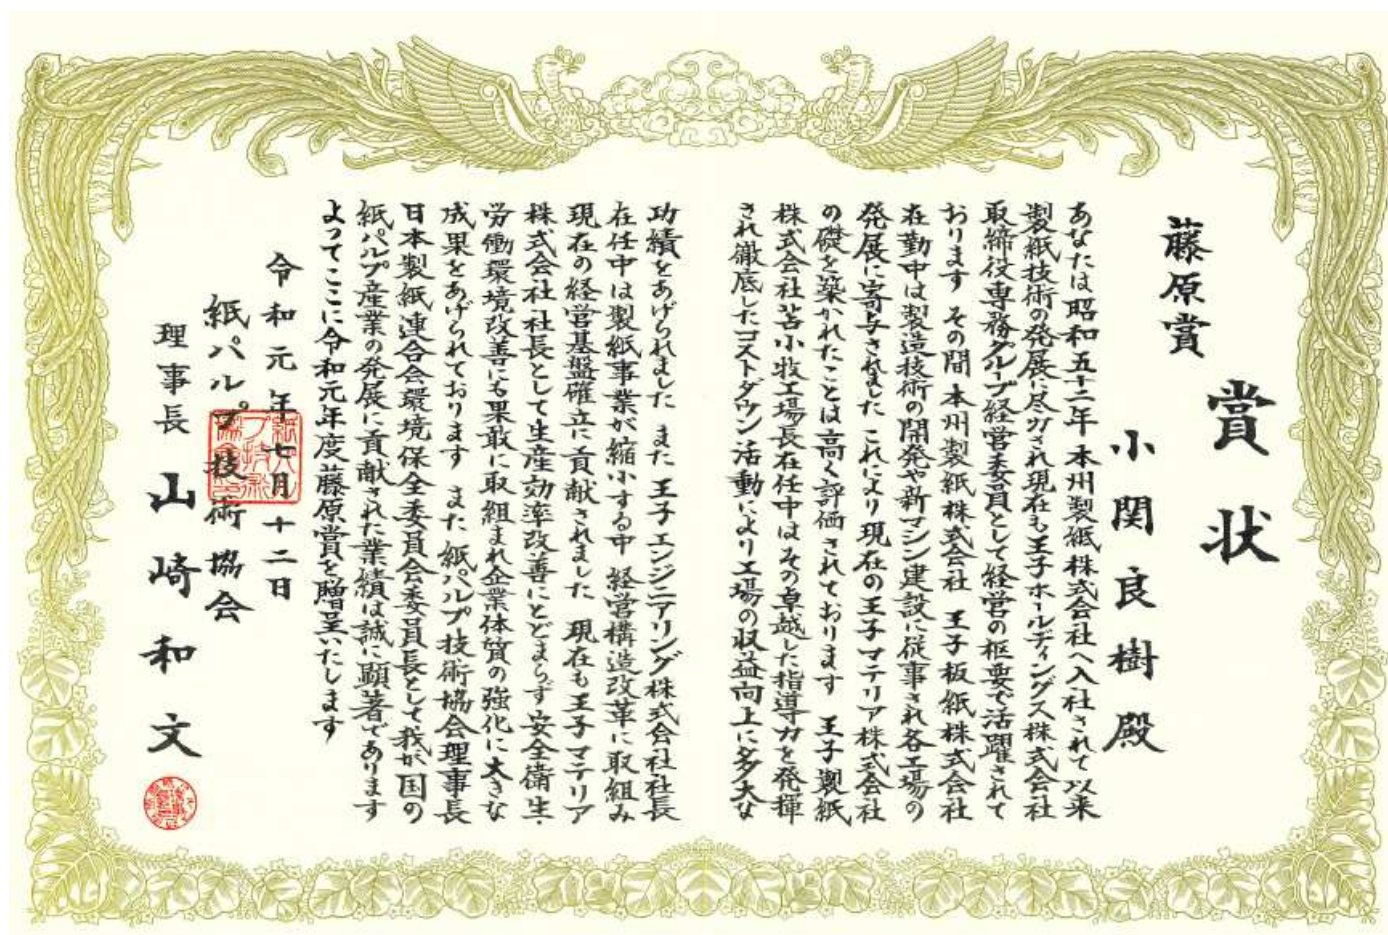 賞状
藤原賞
小関良樹殿
あなたは昭和五十二年本州製紙株式会社へ入社されて以来
製紙技術の発展に尽力され現在も王子ホールディングス株式会社
取締役専務グループ経営委員として経営の枢要で活躍されて
おります その間 本州製紙株式会社 王子板紙株式会社
在勤中は製造技術の開発や新マシン建設に従事され各工場の
発展に寄与されました これにより現在の王子マテリア株式会社
の礎を築かれたことは高く評価されております 王子製紙
株式会社苫小牧工場長在任中はその卓越した指導力を発揮
され徹底したコストダウン活動により工場の収益向上に多大な
功績をあげられました また 王子エンジニアリング株式会社社長
在任中は製紙事業が縮小する中 経営構造改革に取組み
現在の経営基盤確立に貢献されました 現在も王子マテリア
株式会社社長として生産効率改善にとどまらず安全衛生・
労働環境改善にも果敢に取組まれ企業体質の強化に大きな
成果をあげられております また紙パルプ技術協会理事長
日本製紙連合会環境保全委員会委員長として我が国の
紙パルプ産業の発展に貢献された業績は誠に顕著であります
よってここに令和元年度藤原賞を贈呈いたします
令和元年七月十二日
紙パルプ技術協会
理事長 山崎和文